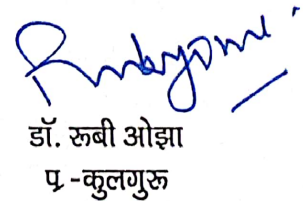 डॉ. रूबी ओझा
प्र.-कुलगुरू